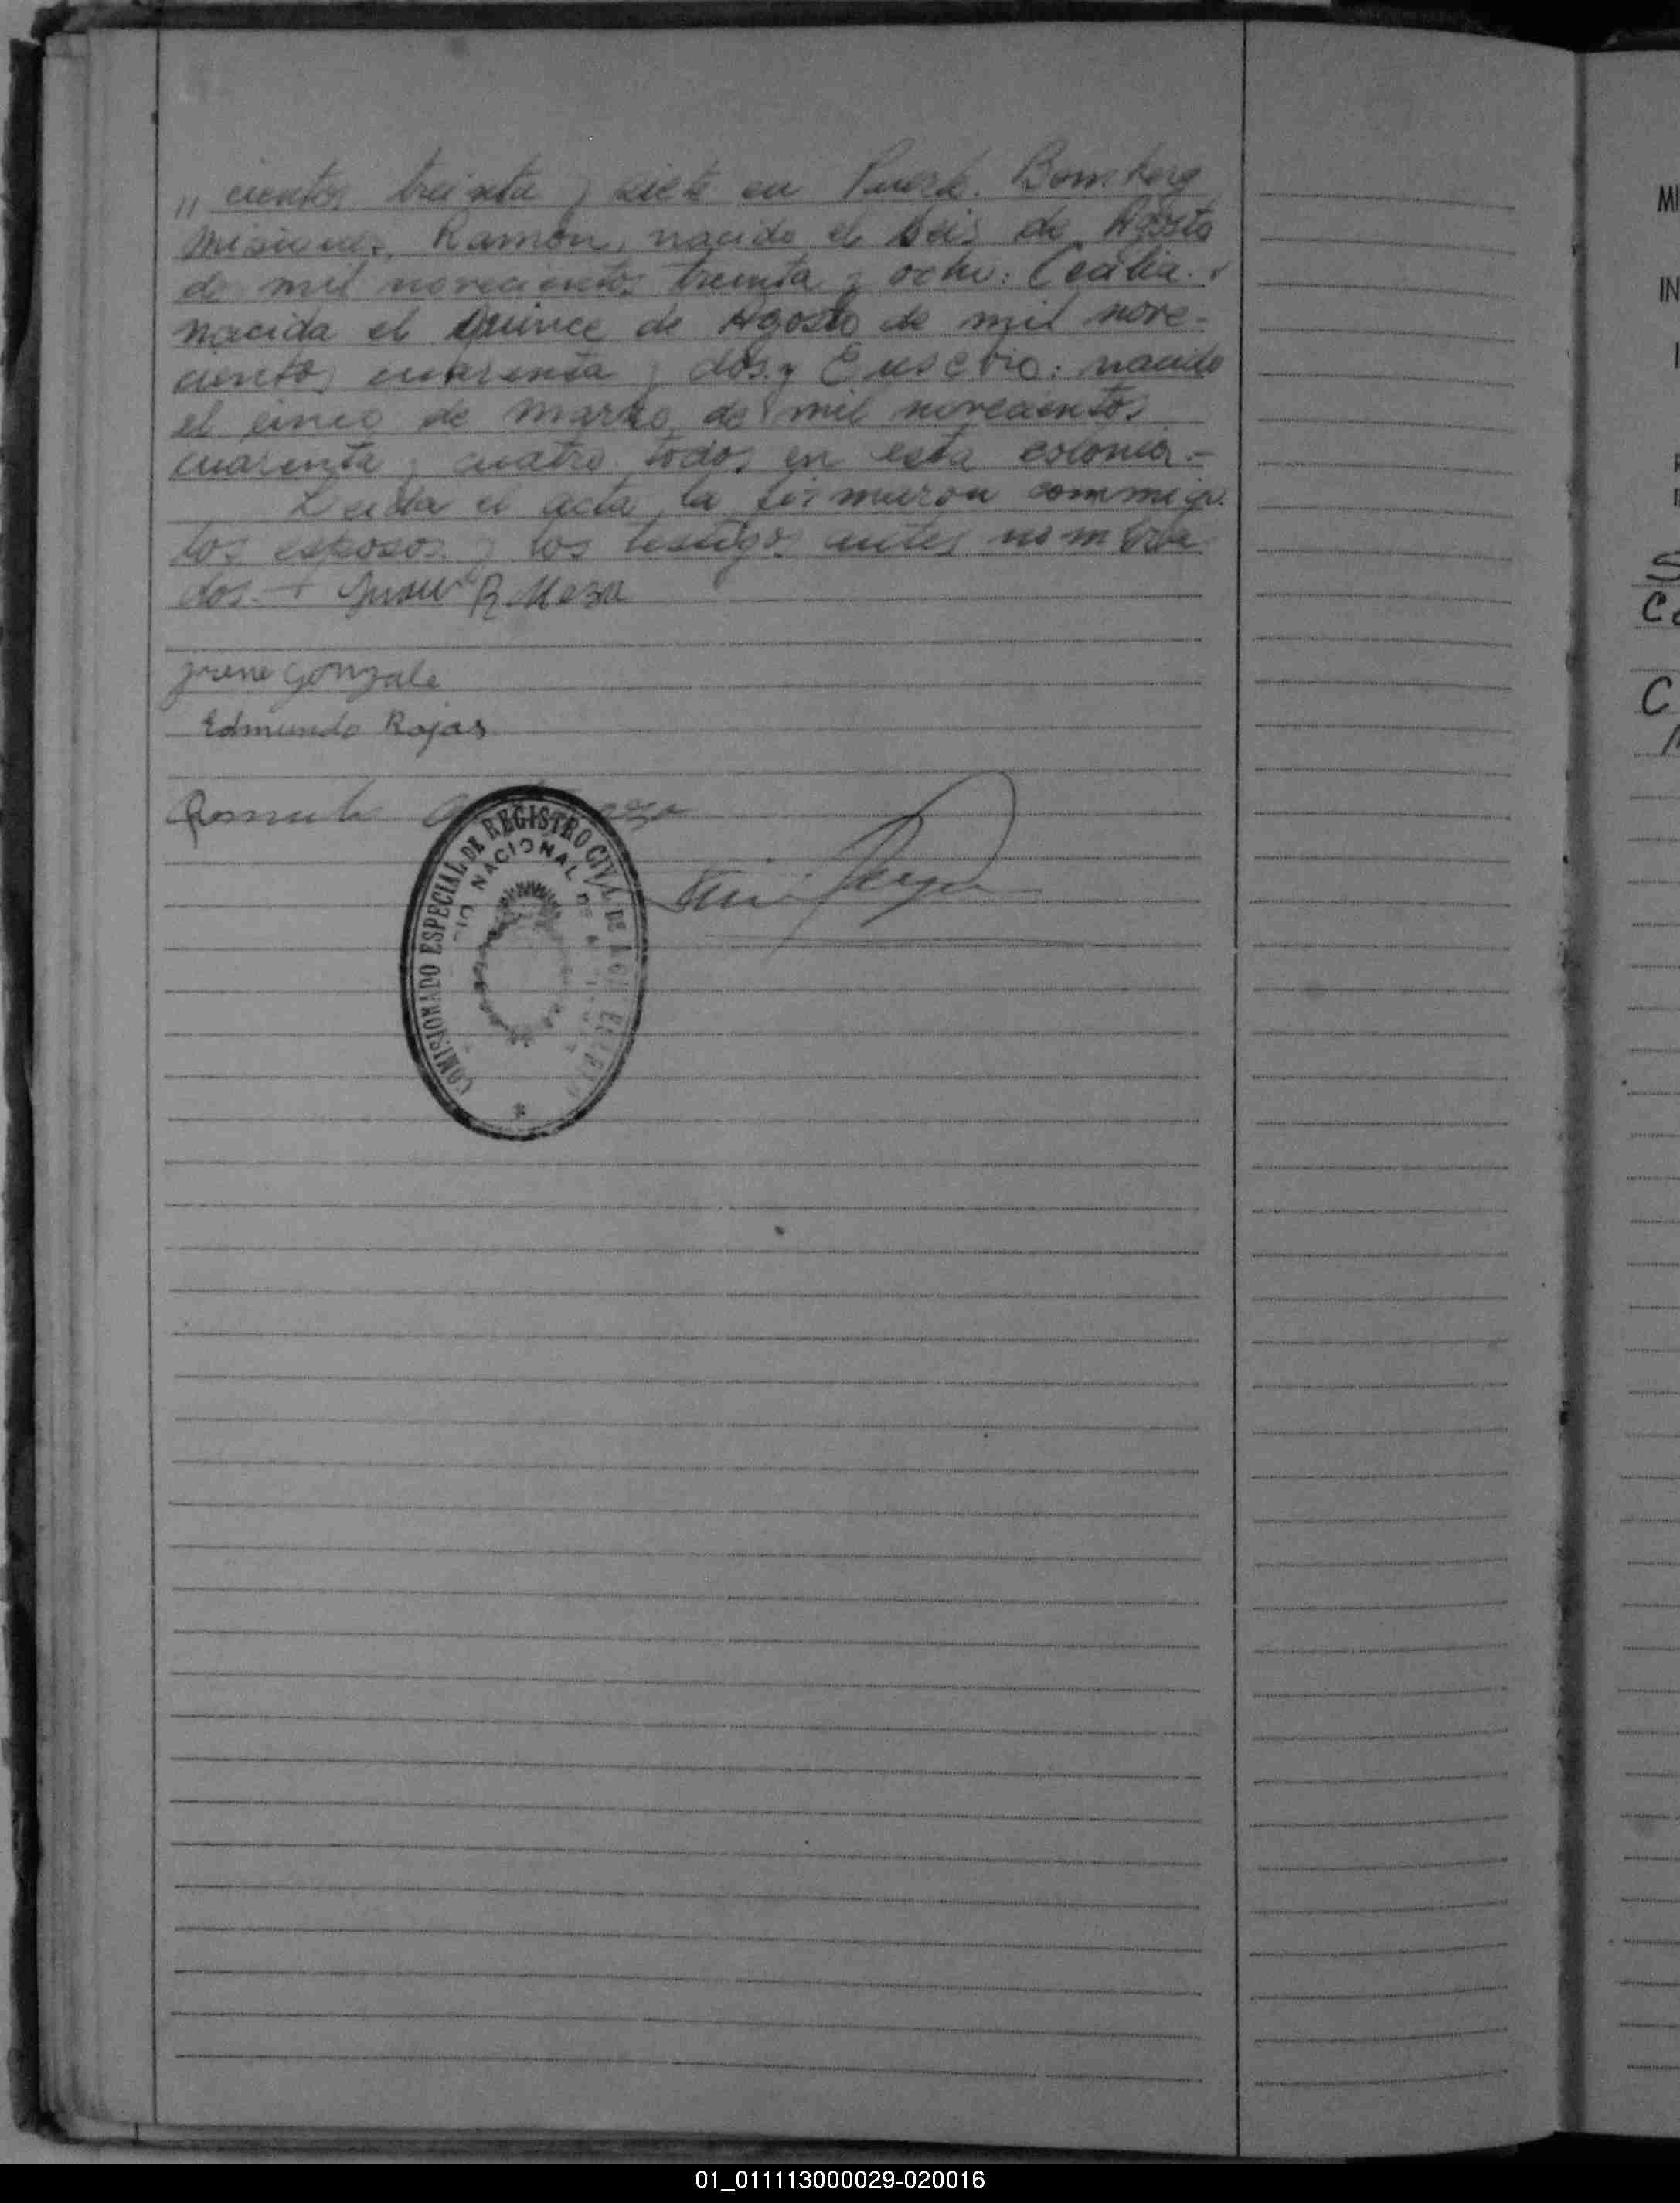 " cientos treinta y siete en Puerto Bemberg
Misiones, Ramón, nacido el seis de Agosto
de mil novecientos treinta y ocho: Cecilia.
nacida el quince de Agosto de mil nove-
cientos cuarenta y dos. y Eusebio: nacido
el cinco de marzo de mil novecientos
cuarenta y cuatro todos en esta colonia.-
Leida el acta, la firmaron conmigo.
los esposos y los testigos antes nombra
dos. + R Meza
Irene Gonzale
Edmundo Rojas
COMISIONADO ESPECIAL DE REGISTRO CIVIL DE
NACIONAL DE
MI
IN
S
C
C
01_011113000029-020016